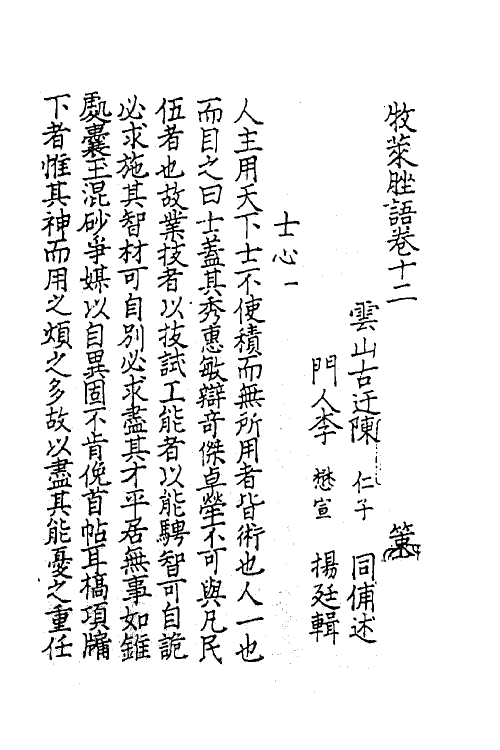 牧萊脞語卷十二
雲山古迂陳 仁子 同俌述
門人李 懋宣 楊廷輯
士心一
人主用天下士不使積而無所用者皆術也人一也
而目之曰士蓋其秀惠敏辯奇傑卓犖不可與凡民
伍者也故業技者以技試工能者以能騁智可自詭
必求施其智材可自別必求盡其才平居無事如錐
處囊玉混砂爭媒以自異固不肯俛首帖耳槁項牖
下者惟其神而用之煩之多故以盡其能憂之重任